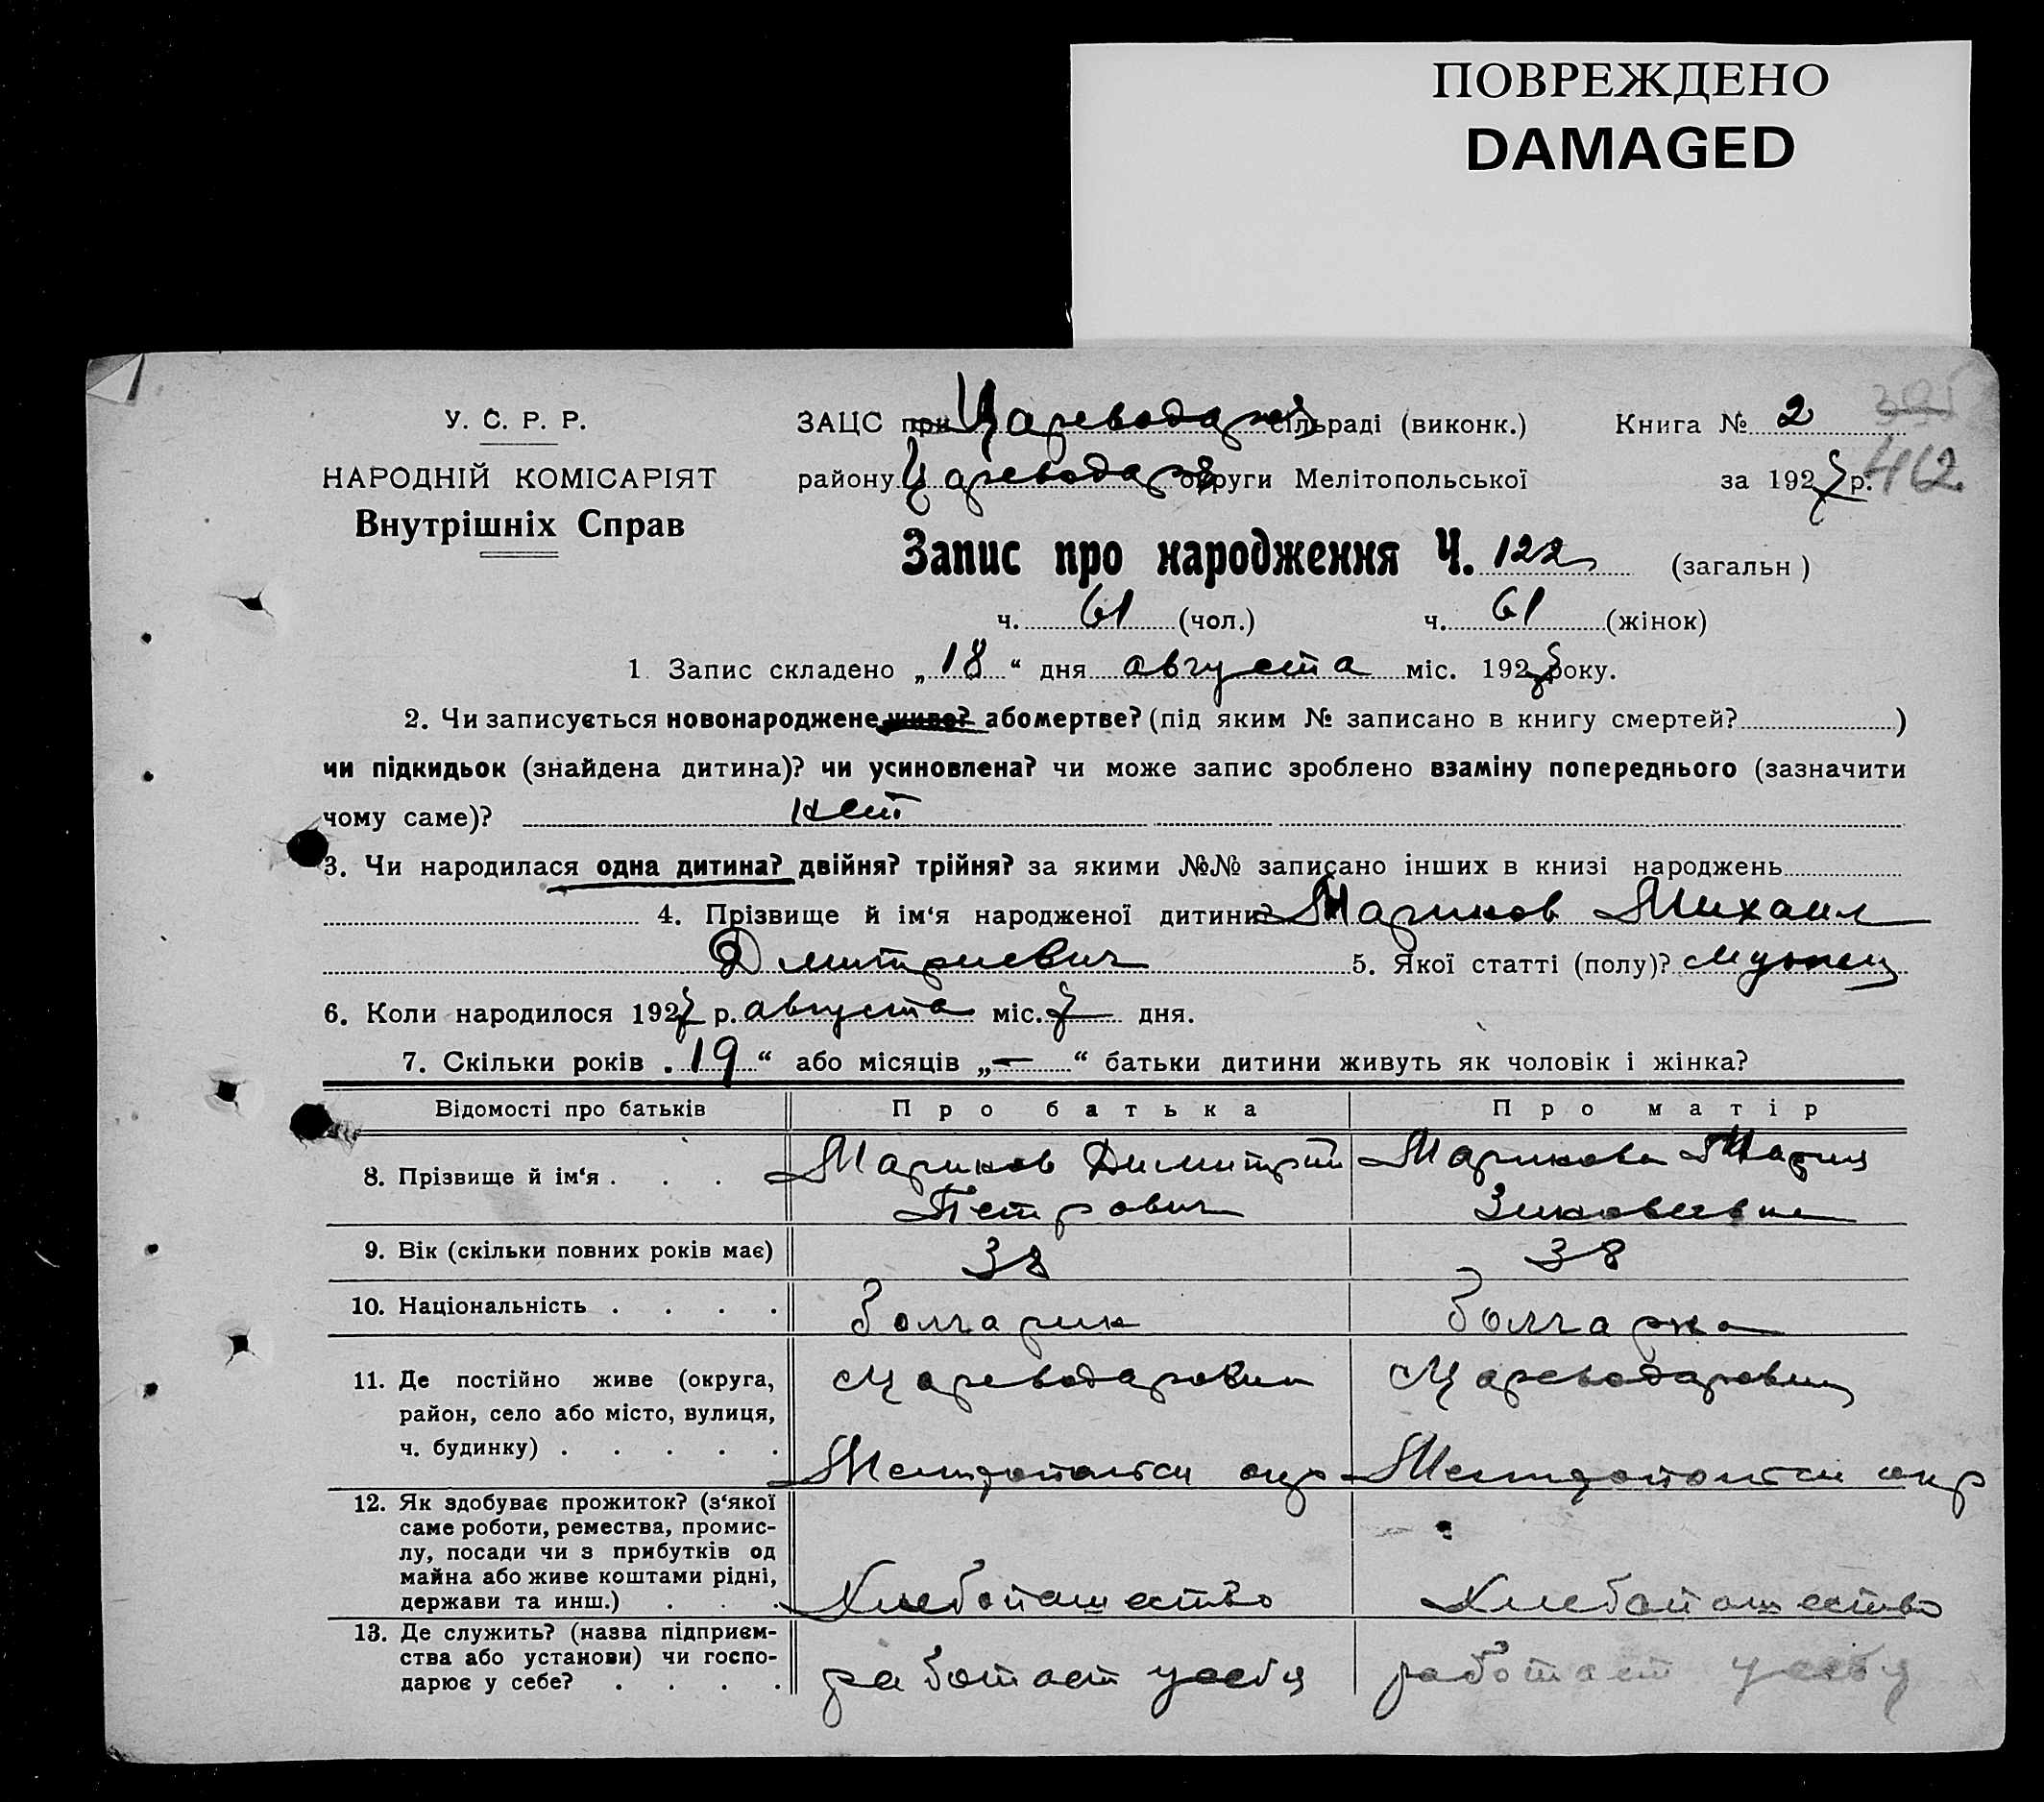 ПОВРЕЖДЕНО
DAMAGED
У. С. Р. Р.
НАРОДНІЙ КОМІСАРІЯТ
Внутрішніх Справ
ЗАЦС при Цареводар сільраді (виконк.) Книга № 2
району Цареводар округи Мелітопольської за 1927 р. 462
Запис про народження Ч. 122 (загальн)
ч. 61 (чол.) ч. 61 (жінок)
1. Запис складено „18“ дня августа міс. 1927 року.
2. Чи записується новонароджене живе? або мертве? (під яким № записано в книгу смертей? )
чи підкидьок (знайдена дитина)? чи усиновлена? чи може запис зроблено взаміну попереднього (зазначити
чому саме)? нет
3. Чи народилася одна дитина? двійня? трійня? за якими №№ записано інших в книзі народжень
4. Прізвище й ім‘я народженої дитини? Мариков Михаил
Дмитриевич 5. Якої статті (полу)? мужск
6. Коли народилося 1927 р. августа міс. 7 дня.
7. Скільки років „19“ або місяців „—“ батьки дитини живуть як чоловік і жінка?
Відомості про батьків Про батька Про матір
8. Прізвище й ім‘я . . . Мариков Димитрий Марикова Мария
Петрович Зиновеевна
9. Вік (скільки повних років має) 38 38
10. Національність . . . . болгарин болгарка
11. Де постійно живе (округа, Цареводаровки Цареводаровки
район, село або місто, вулиця,
ч. будинку) . . . . . Мелитопольск окр Мелитопольск окр
12. Як здобуває прожиток? (з‘якої
саме роботи, ремества, промис-
лу, посади чи з прибутків од
майна або живе коштами рідні,
держави та инш.) . . . Хлебопашество Хлебопашество
13. Де служить? (назва підприєм-
ства або установи) чи госпо- работает у себя работает у себя
дарює у себе? . . . .